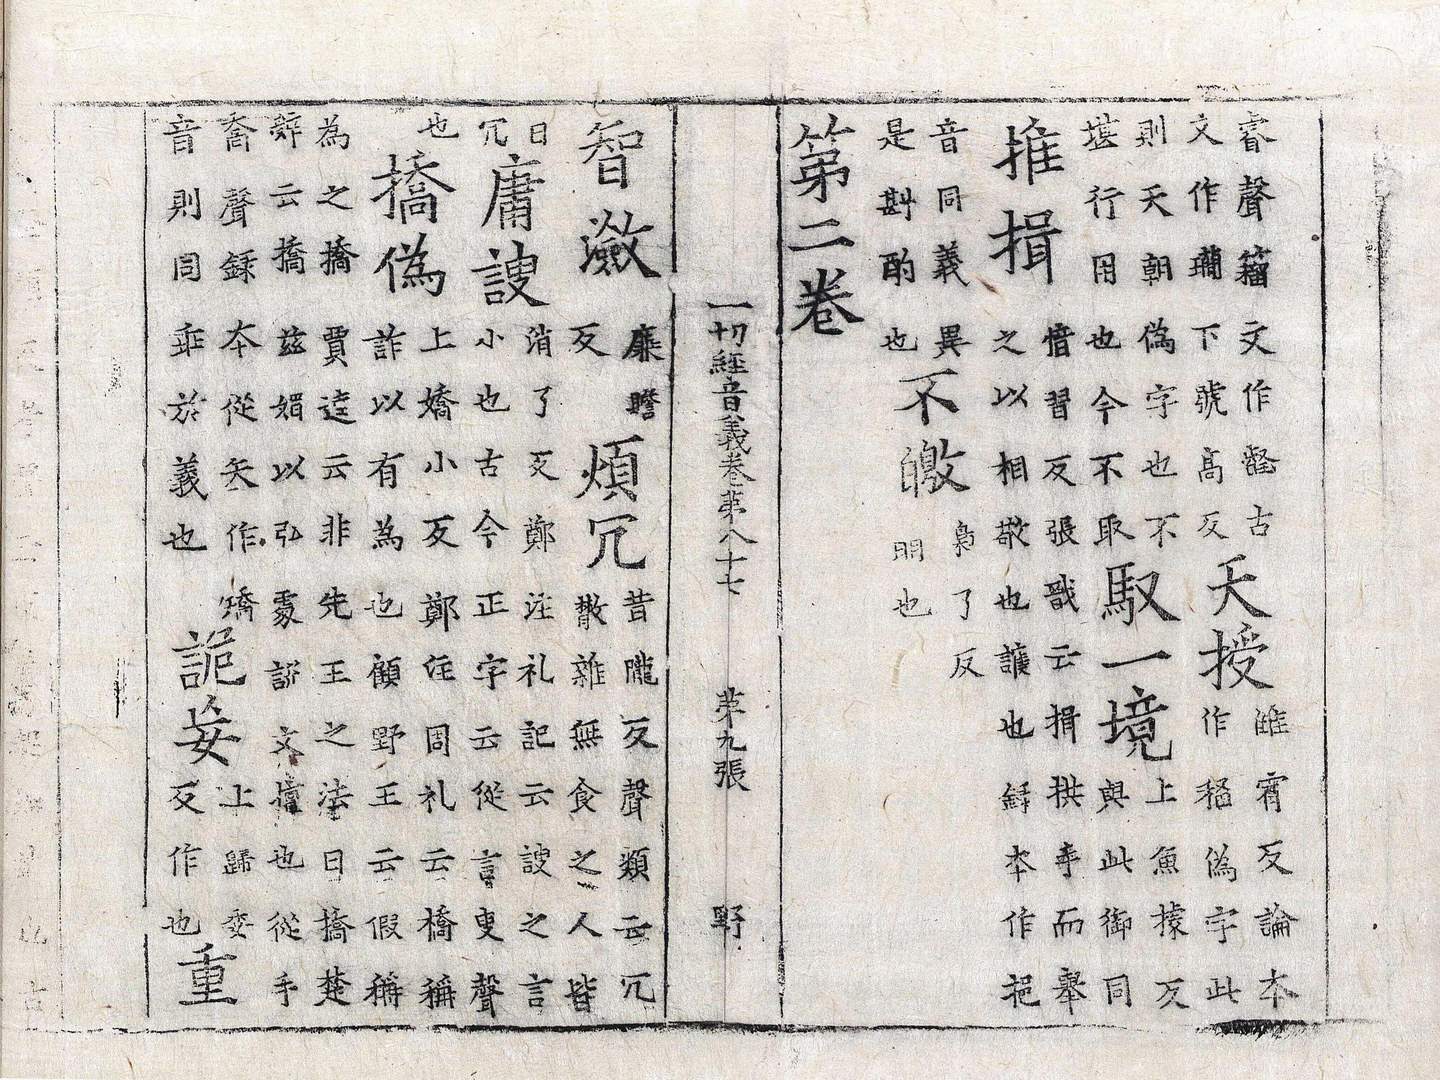 睿聲籒文作壑古
文作下號高反
天授
雖宵反論本
作偽字此
則天朝偽字也不
堪行用也今不取
馭一境
上魚據反
與此御同
推揖
愔習反張戢云揖拱手而舉
之以相敬也讓也録本作挹
音同義異
是斟酌也
不皦
梟了反
明也
第二卷
一切經音義卷第八十七 第九張 野
智瀲
廉瞻
反
煩冗
茸隴反聲類云冗
散雜無食之人皆
曰
冗
庸謏
消了反鄭注礼記云謏之言
小也古今正字云從言叟聲
也
撟偽
上嬌小反鄭注周礼云撟稱
詐以有為也顧野王云假稱
為之撟賈逵云非先王之法曰撟楚
辝云撟茲媚以弘處説文擅也從手
喬聲録本從矢作矯
音則同乖於義也
詭妄
上歸委
反作也
重